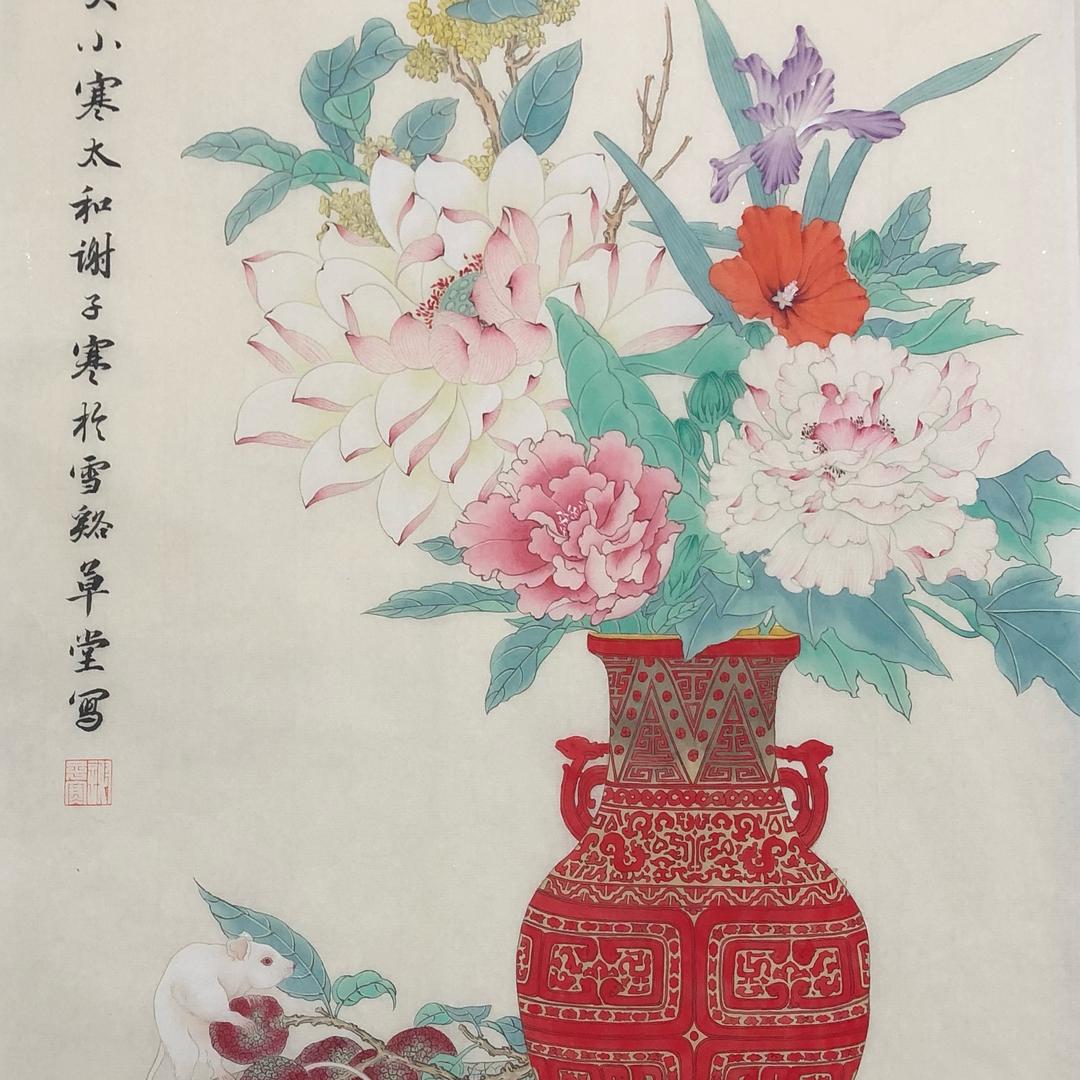 小寒太和谢子寒於雪谿草堂写